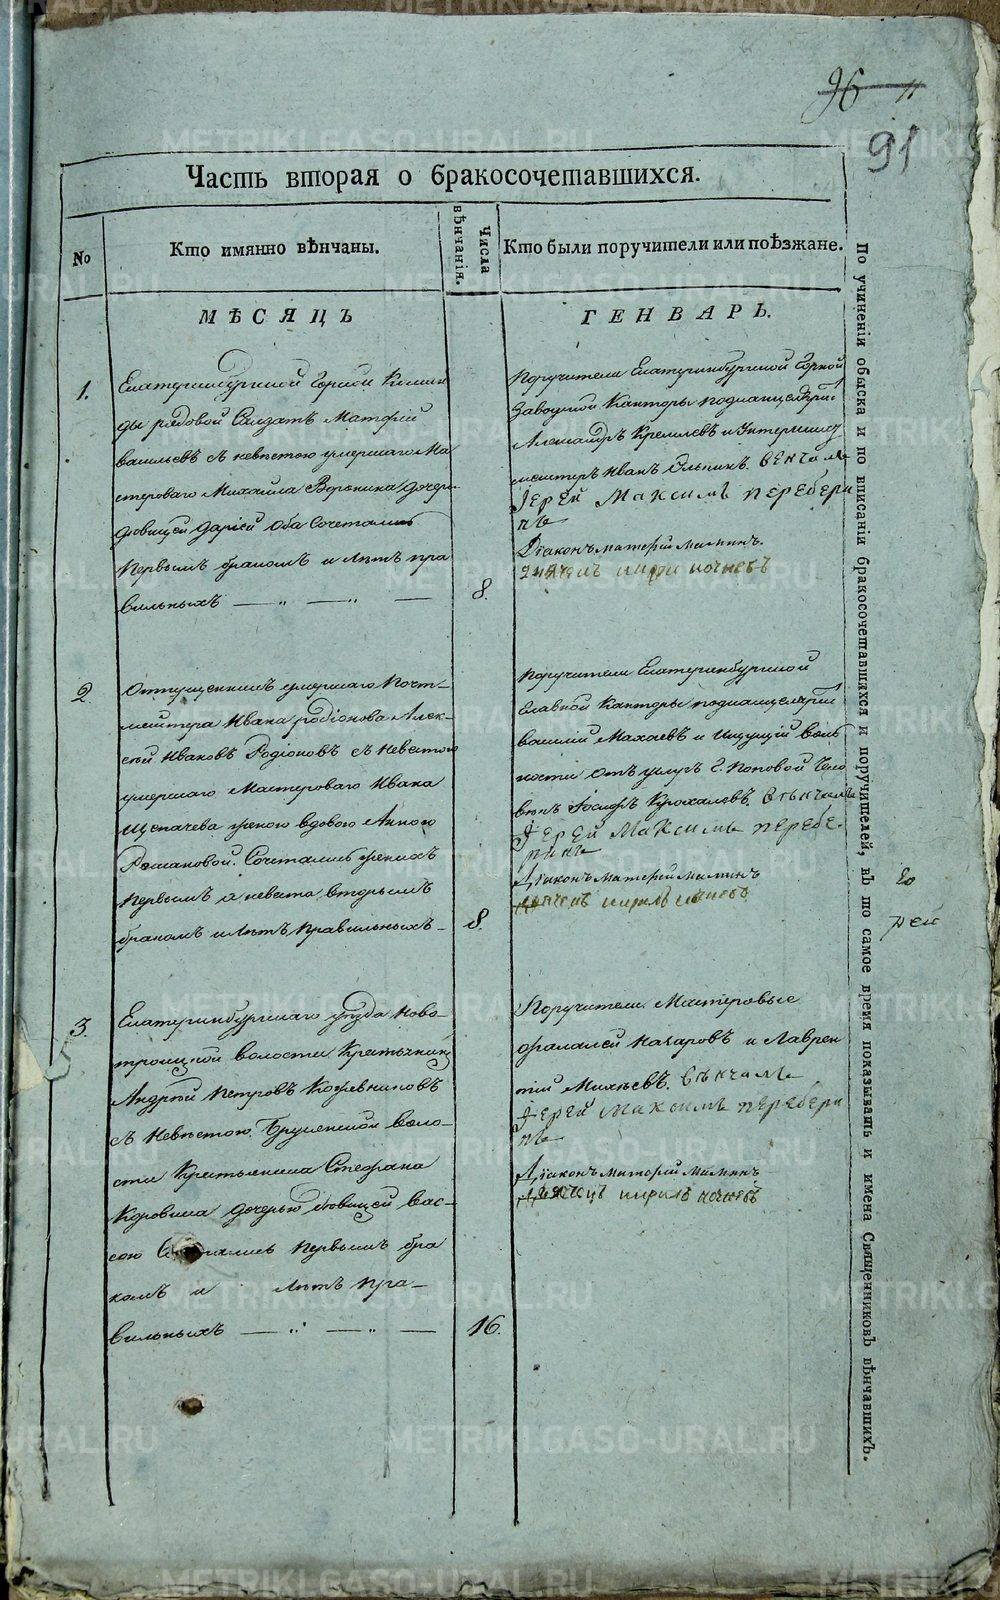 96 11
91
Часть вторая о бракосочетавшихся.
№
Кто имянно вѣнчаны.
Числа вѣнчанія.
Кто были поручители или поѣзжане.
МѢСЯЦЪ
ГЕНВАРЬ.
1.
Екатеринбургской Горной Коман
ды рядовой Салдатъ Матфей
васильевъ съ невѣстою умершаго Ма
стероваго Михаила Воронина дочерью
дѣвицей Даріей Оба Сочетались
Первымъ бракомъ и Лѣтъ пра
вильныхъ
8.
Поручители Екатеринбургской Горной
Заводской Канторы подканцеляристъ
Александръ Кремлевъ и Унтершихт
мейстеръ Иванъ вѣнчалъ
Іерей Максимъ перебери
нъ
Діаконъ матфей маминъ.
дьячекъ кирилъ кочневъ
2.
Отпущенникъ умершаго Почт-
мейстера Ивана родіонова Алек-
сѣй Ивановъ Родіоновъ съ Невѣстою
умершаго Мастероваго Ивана
Щепачева женою вдовою Анною
Романовой. Сочетались женихъ
первымъ а невеста вторымъ
бракомъ и Лѣтъ правильныхъ
8.
Поручители Екатеринбургской
Главной Канторы подканцеляристъ
василій Махаевъ и Ищущій воль
ности отъ услугъ Г. Поповой Чело
вѣкъ Іосифъ Крохалевъ. Вѣнчалъ
Іерей Максимъ перебе-
ринъ
Діаконъ матфей маминъ
дьячекъ кирилъ кочневъ
3.
Екатеринбургскаго уѣзда Ново-
троицкой волости Крестьянинъ
Андрей Петровъ Кожевниковъ
съ Невѣстою Бруснской воло-
сти Крестьянина Стефана
Коровина дочерью дѣвицей Вас-
сою Сочетались первымъ бра
комъ и Лѣтъ пра-
вильныхъ
16.
Поручители Мастеровые
фалалей Назаровъ и Лаврен
тій Михѣевъ. вѣнчалъ
Іерей Максимъ перебери
нъ
Діаконъ матфей маминъ
дьячецъ кирилъ кочневъ
По учиненіи обыска и по вписаніи бракосочетавшихся и поручителей, въ то самое время показывать и имена Священниковъ вѣнчавшихъ.
Ео
рей
METRIKI.GASO-URAL.RU